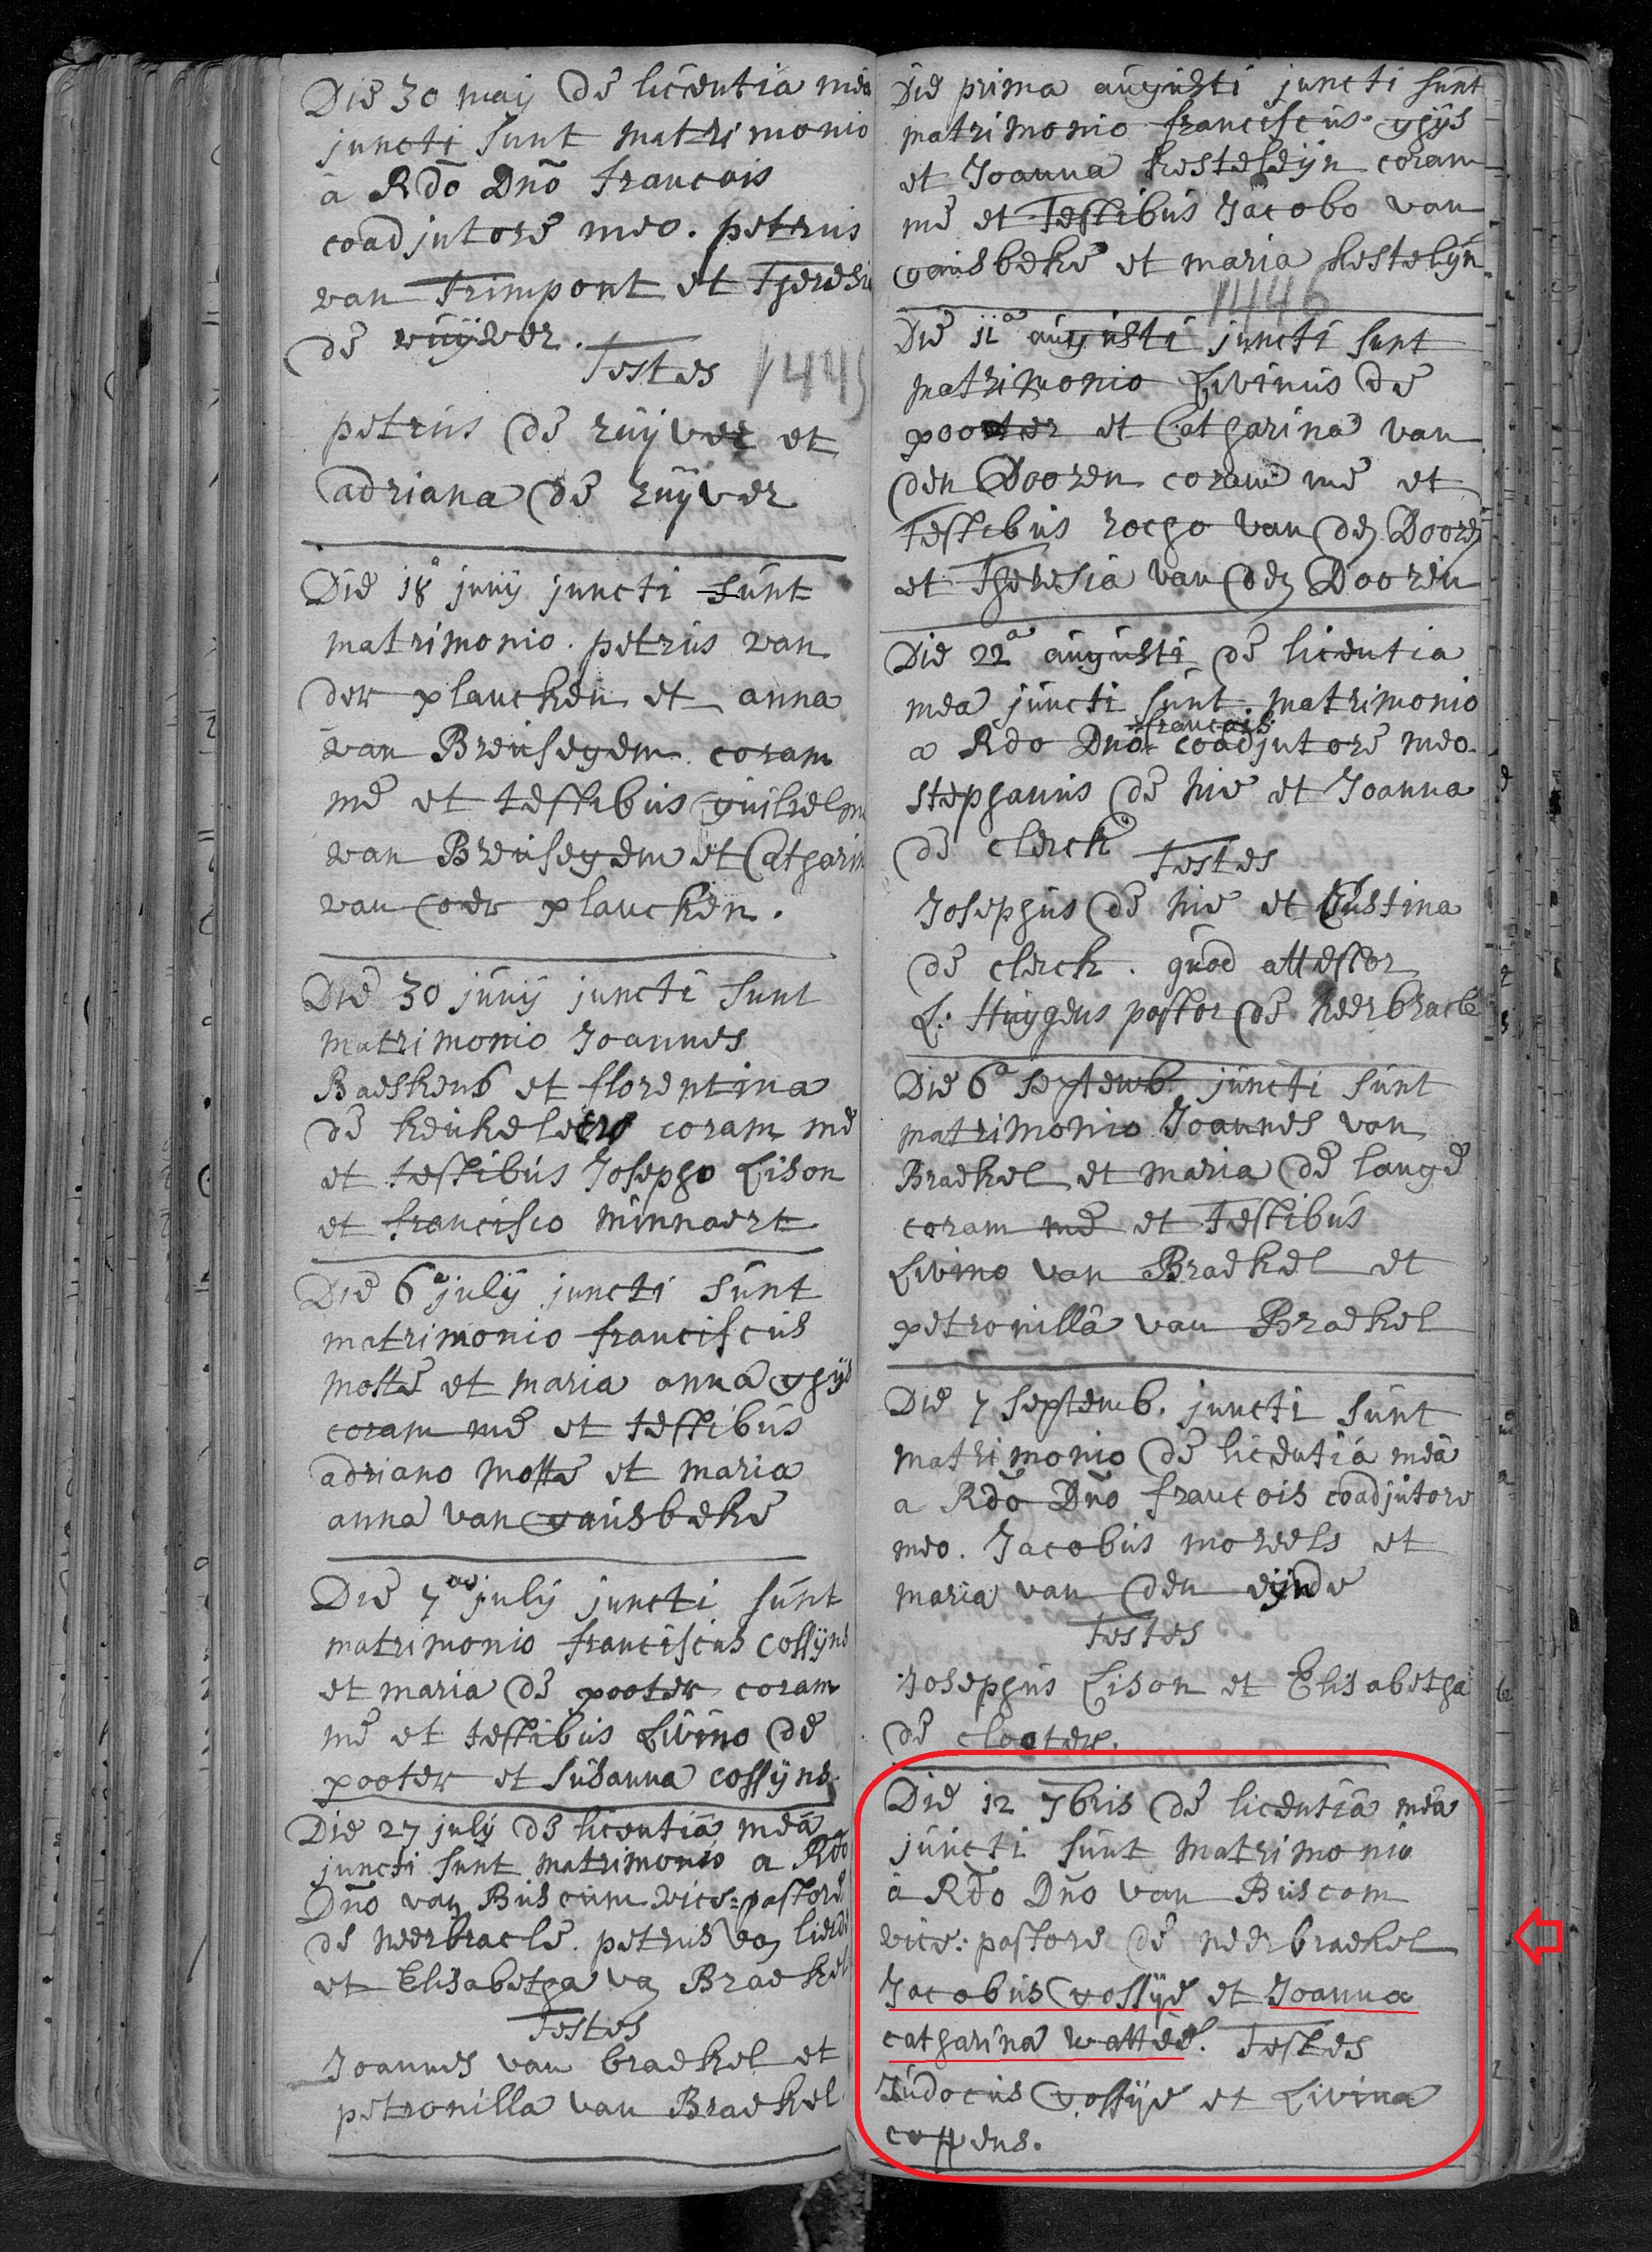 Die 30 maij de licentia mea
juncti sunt matrimonio
a Rdo Dno francois
coadjutore meo. petrus
van Trimpont et Theresia
de ruijver.
Testes
1445
petrus de ruijver et
adriana de ruijver
Die 18a junij juncti sunt
matrimonio. petrus van
der plancken et anna
van Breusegem. coram
me et testibus guilielmo
van Breusegem et Catharina
van der plancken.
Die 30 junij juncti sunt
matrimonio Joannes
Baeskens et florentina
de coram me
et testibus Josepho Lison
et francisco minnaert
Die 6a julij juncti sunt
matrimonio franciscus
motte et maria anna ghijs
coram me et testibus
adriano motte et maria
anna van gansbeke
Die 7a julij juncti sunt
matrimonio franciscus cossijns
et maria de pooter coram
me et testibus Livino de
pooter et susanna cossijns.
Die 27 julij de licentia mea
juncti sunt matrimonio a Rdo
Dno van Buscum vice: pastore
de neerbracle. petrus van lierde
et Elisabetha van Braekel
Testes
Joannes van braekel et
petronilla van Braekel
Die prima augusti juncti sunt
matrimonio franciscus ghijs
et Joanna kesteleijn coram
me et Testibus Jacobo van
gansbeke et maria kestelijn.
1446
Die 11a augusti juncti sunt
matrimonio Livinus de
pooter et Catharina van
den Dooren coram me et
Testibus rocho van den Dooren
et Theresia van den Dooren
Die 22a augusti de licentia
mea juncti sunt matrimonio
francois
a Rdo Dno coadjutore meo.
stephanus de hie et Joanna
de clerck
Testes
Josephus de hie et Justina
de clerck. quod attestor
L: Huygens pastor de neerbracle
Die 6a septemb. juncti sunt
matrimonio Joannes van
Braekel et maria de lange
coram me et Testibus
Livino van Braekel et
petronilla van Braekel
Die 7 septemb. juncti sunt
matrimonio de licentia mea
a Rdo Dno francois coadjutore
meo. Jacobus moreels et
maria van den eijnde
Testes
Josephus Lison et Elisabetha
de clooter.
Die 12 7bris de licentia mea
juncti sunt matrimonio
a Rdo Dno van Buscom
vice: pastore de neerbraekel
Jacobus gossije et Joanna
catharina wattee. Testes
Judocus gossije et Livina
coppens.